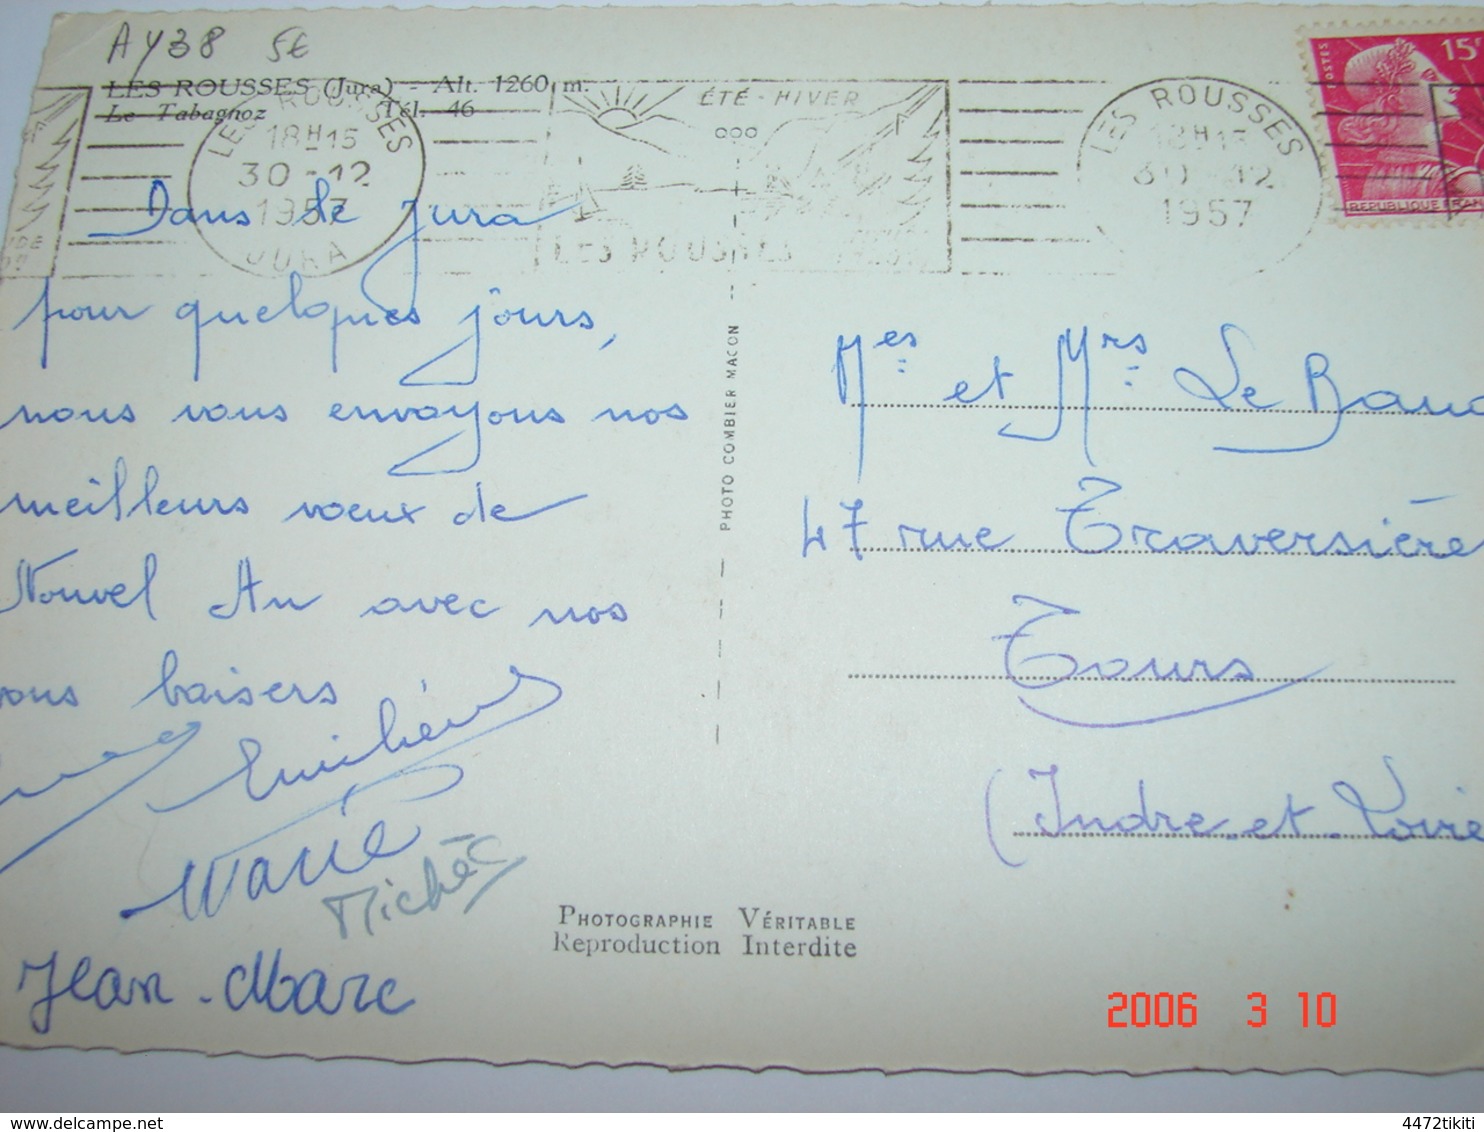 AY38 5€
LES ROUSSES (Jura) - Alt. 1260 m.
Le Tabagnoz Tél. 46
LES ROUSSES
18H15
30-12
1957
JURA
ÉTÉ - HIVER
LES ROUSSES
LES ROUSSES
18H15
30-12
1957
POSTES
15F
REPUBLIQUE FRAN
Dans le Jura
pour quelques jours,
nous vous envoyons nos
meilleurs voeux de
Nouvel An avec nos
bons baisers
Marie
Michèle
Jean-Marc
PHOTO COMBIER MACON
Mes et Mrs Le Bau
47 rue Traversière
Tours
(Indre-et-Loire
PHOTOGRAPHIE VÉRITABLE
Reproduction Interdite
2006 3 10
4472tikiti